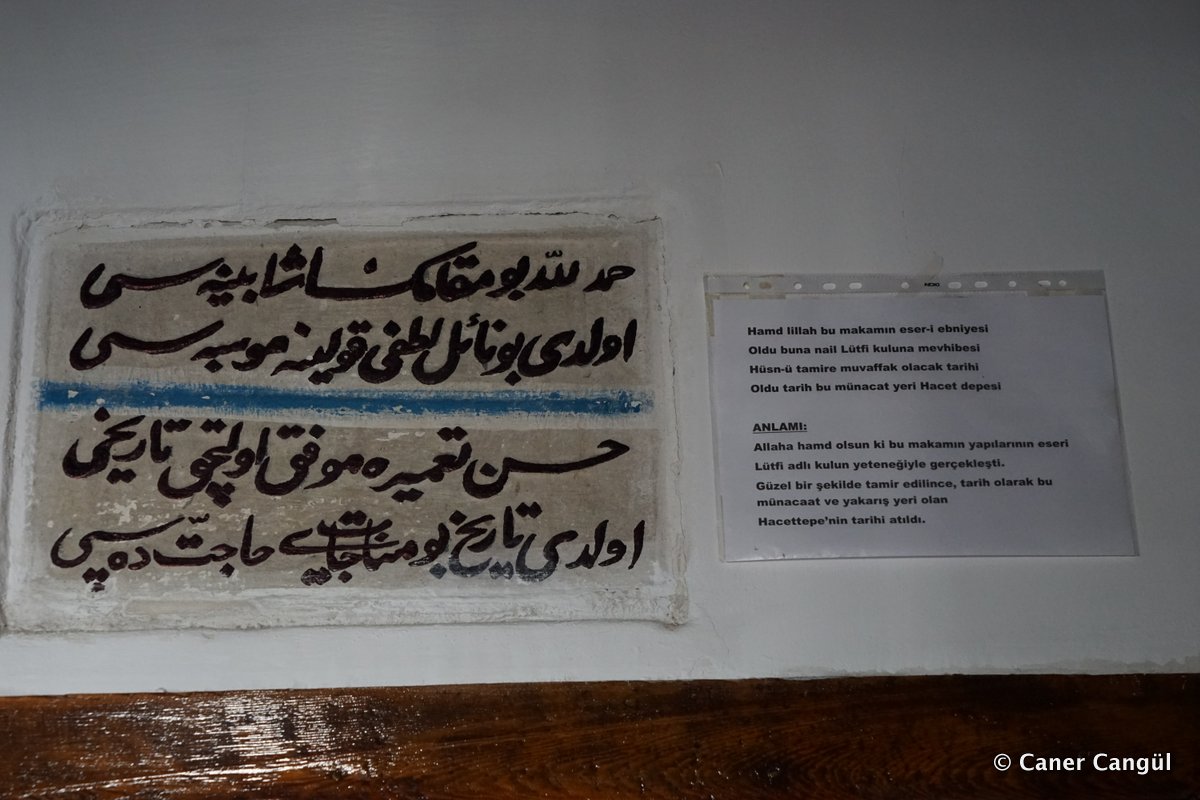 حمد لله بو مقامك انشا بنيه سى
اولدى بو نائل لطفى قولينه موهبه سى
حسن تعميره موفق اولتجق تاريخى
اولدى تاريخ بو مناجات يرى حاجت دپه سى
Hamd lillah bu makamın eser-i ebniyesi
Oldu buna nail Lütfi kuluna mevhibesi
Hüsn-ü tamire muvaffak olacak tarihi
Oldu tarih bu münacat yeri Hacet depesi
ANLAMI:
Allaha hamd olsun ki bu makamın yapılarının eseri
Lütfi adlı kulun yeteneğiyle gerçekleşti.
Güzel bir şekilde tamir edilince, tarih olarak bu
münacaat ve yakarış yeri olan
Hacettepe'nin tarihi atıldı.
© Caner Cangül